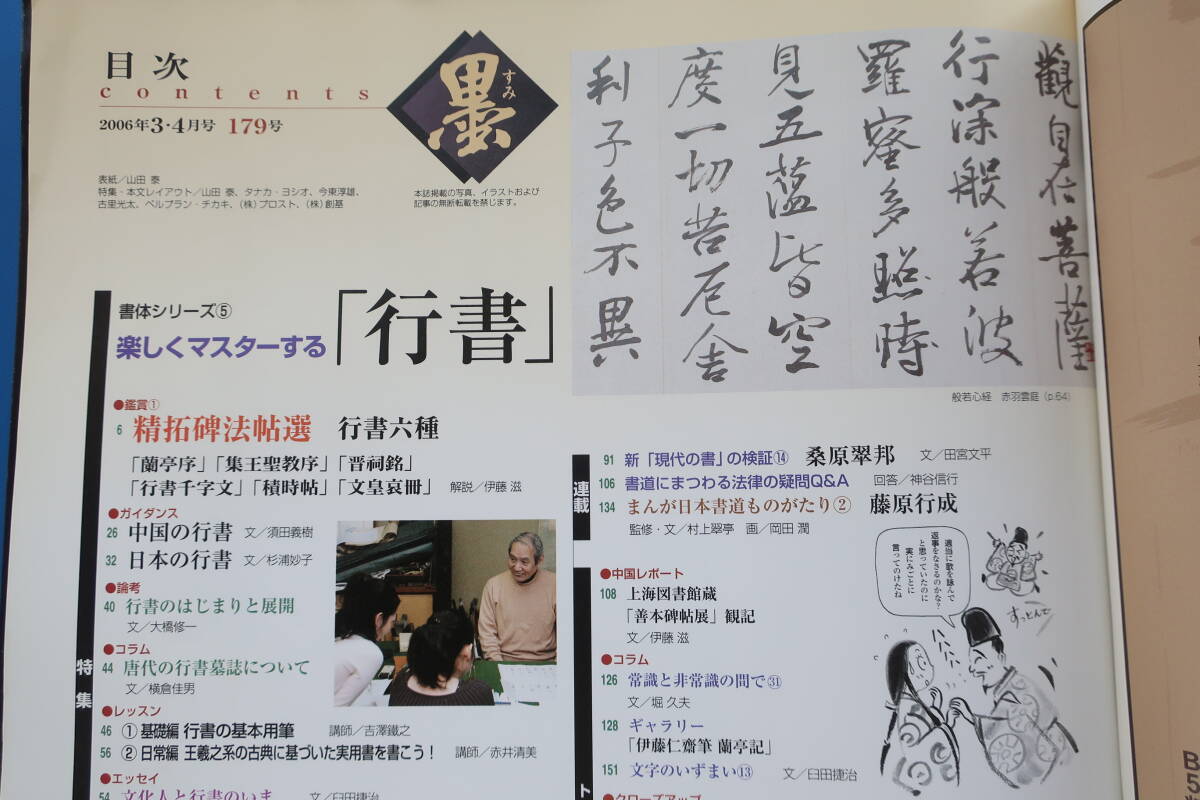 目次
contents
2006年3・4月号 179号
墨
すみ
表紙／山田 泰
特集・本文レイアウト／山田 泰、タナカ・ヨシオ、今東淳雄、
古里光太、ベルブラン・チカキ、(株)プロスト、(株)創基
本誌掲載の写真、イラストおよび
記事の無断転載を禁じます。
觀自在菩薩
行深般若波
羅蜜多照時
見五蕴皆空
度一切苦厄舎
利子色不異
般若心経 赤羽雲庭 (p.64)
書体シリーズ⑤
楽しくマスターする「行書」
特集
●鑑賞①
6 精拓碑法帖選 行書六種
「蘭亭序」「集王聖教序」「晋祠銘」
「行書千字文」「積時帖」「文皇哀冊」 解説／伊藤 滋
●ガイダンス
26 中国の行書 文／須田義樹
32 日本の行書 文／杉浦妙子
●論考
40 行書のはじまりと展開
文／大橋修一
●コラム
44 唐代の行書墓誌について
文／横倉佳男
●レッスン
46 ①基礎編 行書の基本用筆 講師／吉澤鐵之
56 ②日常編 王羲之系の古典に基づいた実用書を書こう！ 講師／赤井清美
●エッセイ
54 文化人と行書のいま 文／臼田捷治
連載
91 新「現代の書」の検証⑭ 桑原翠邦 文／田宮文平
106 書道にまつわる法律の疑問Q&A 回答／神谷信行
134 まんが日本書道ものがたり② 藤原行成
監修・文／村上翠亭 画／岡田 潤
適当に歌を詠んで
返事をなさるのかな？
と思っていたのに
実にみごとに
言ってのけたね
すっとんで
●中国レポート
108 上海図書館蔵
「善本碑帖展」観記
文／伊藤 滋
●コラム
126 常識と非常識の間で㉛
文／堀 久夫
128 ギャラリー
「伊藤仁齋筆 蘭亭記」
151 文字のいずまい⑬ 文／臼田捷治
●クローズアップ
ト
B5